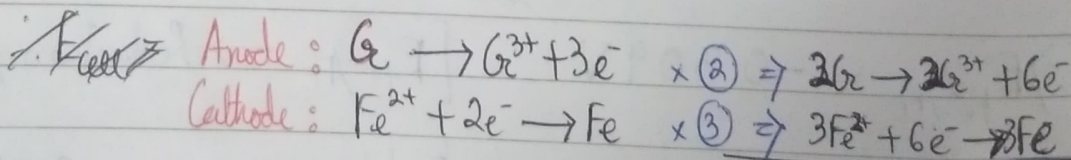 Anode: Cr → Cr³⁺ + 3e⁻ × ② ⇒ 2Cr → 2Cr³⁺ + 6e⁻
Cathode: Fe²⁺ + 2e⁻ → Fe × ③ ⇒ 3Fe²⁺ + 6e⁻ → 3Fe